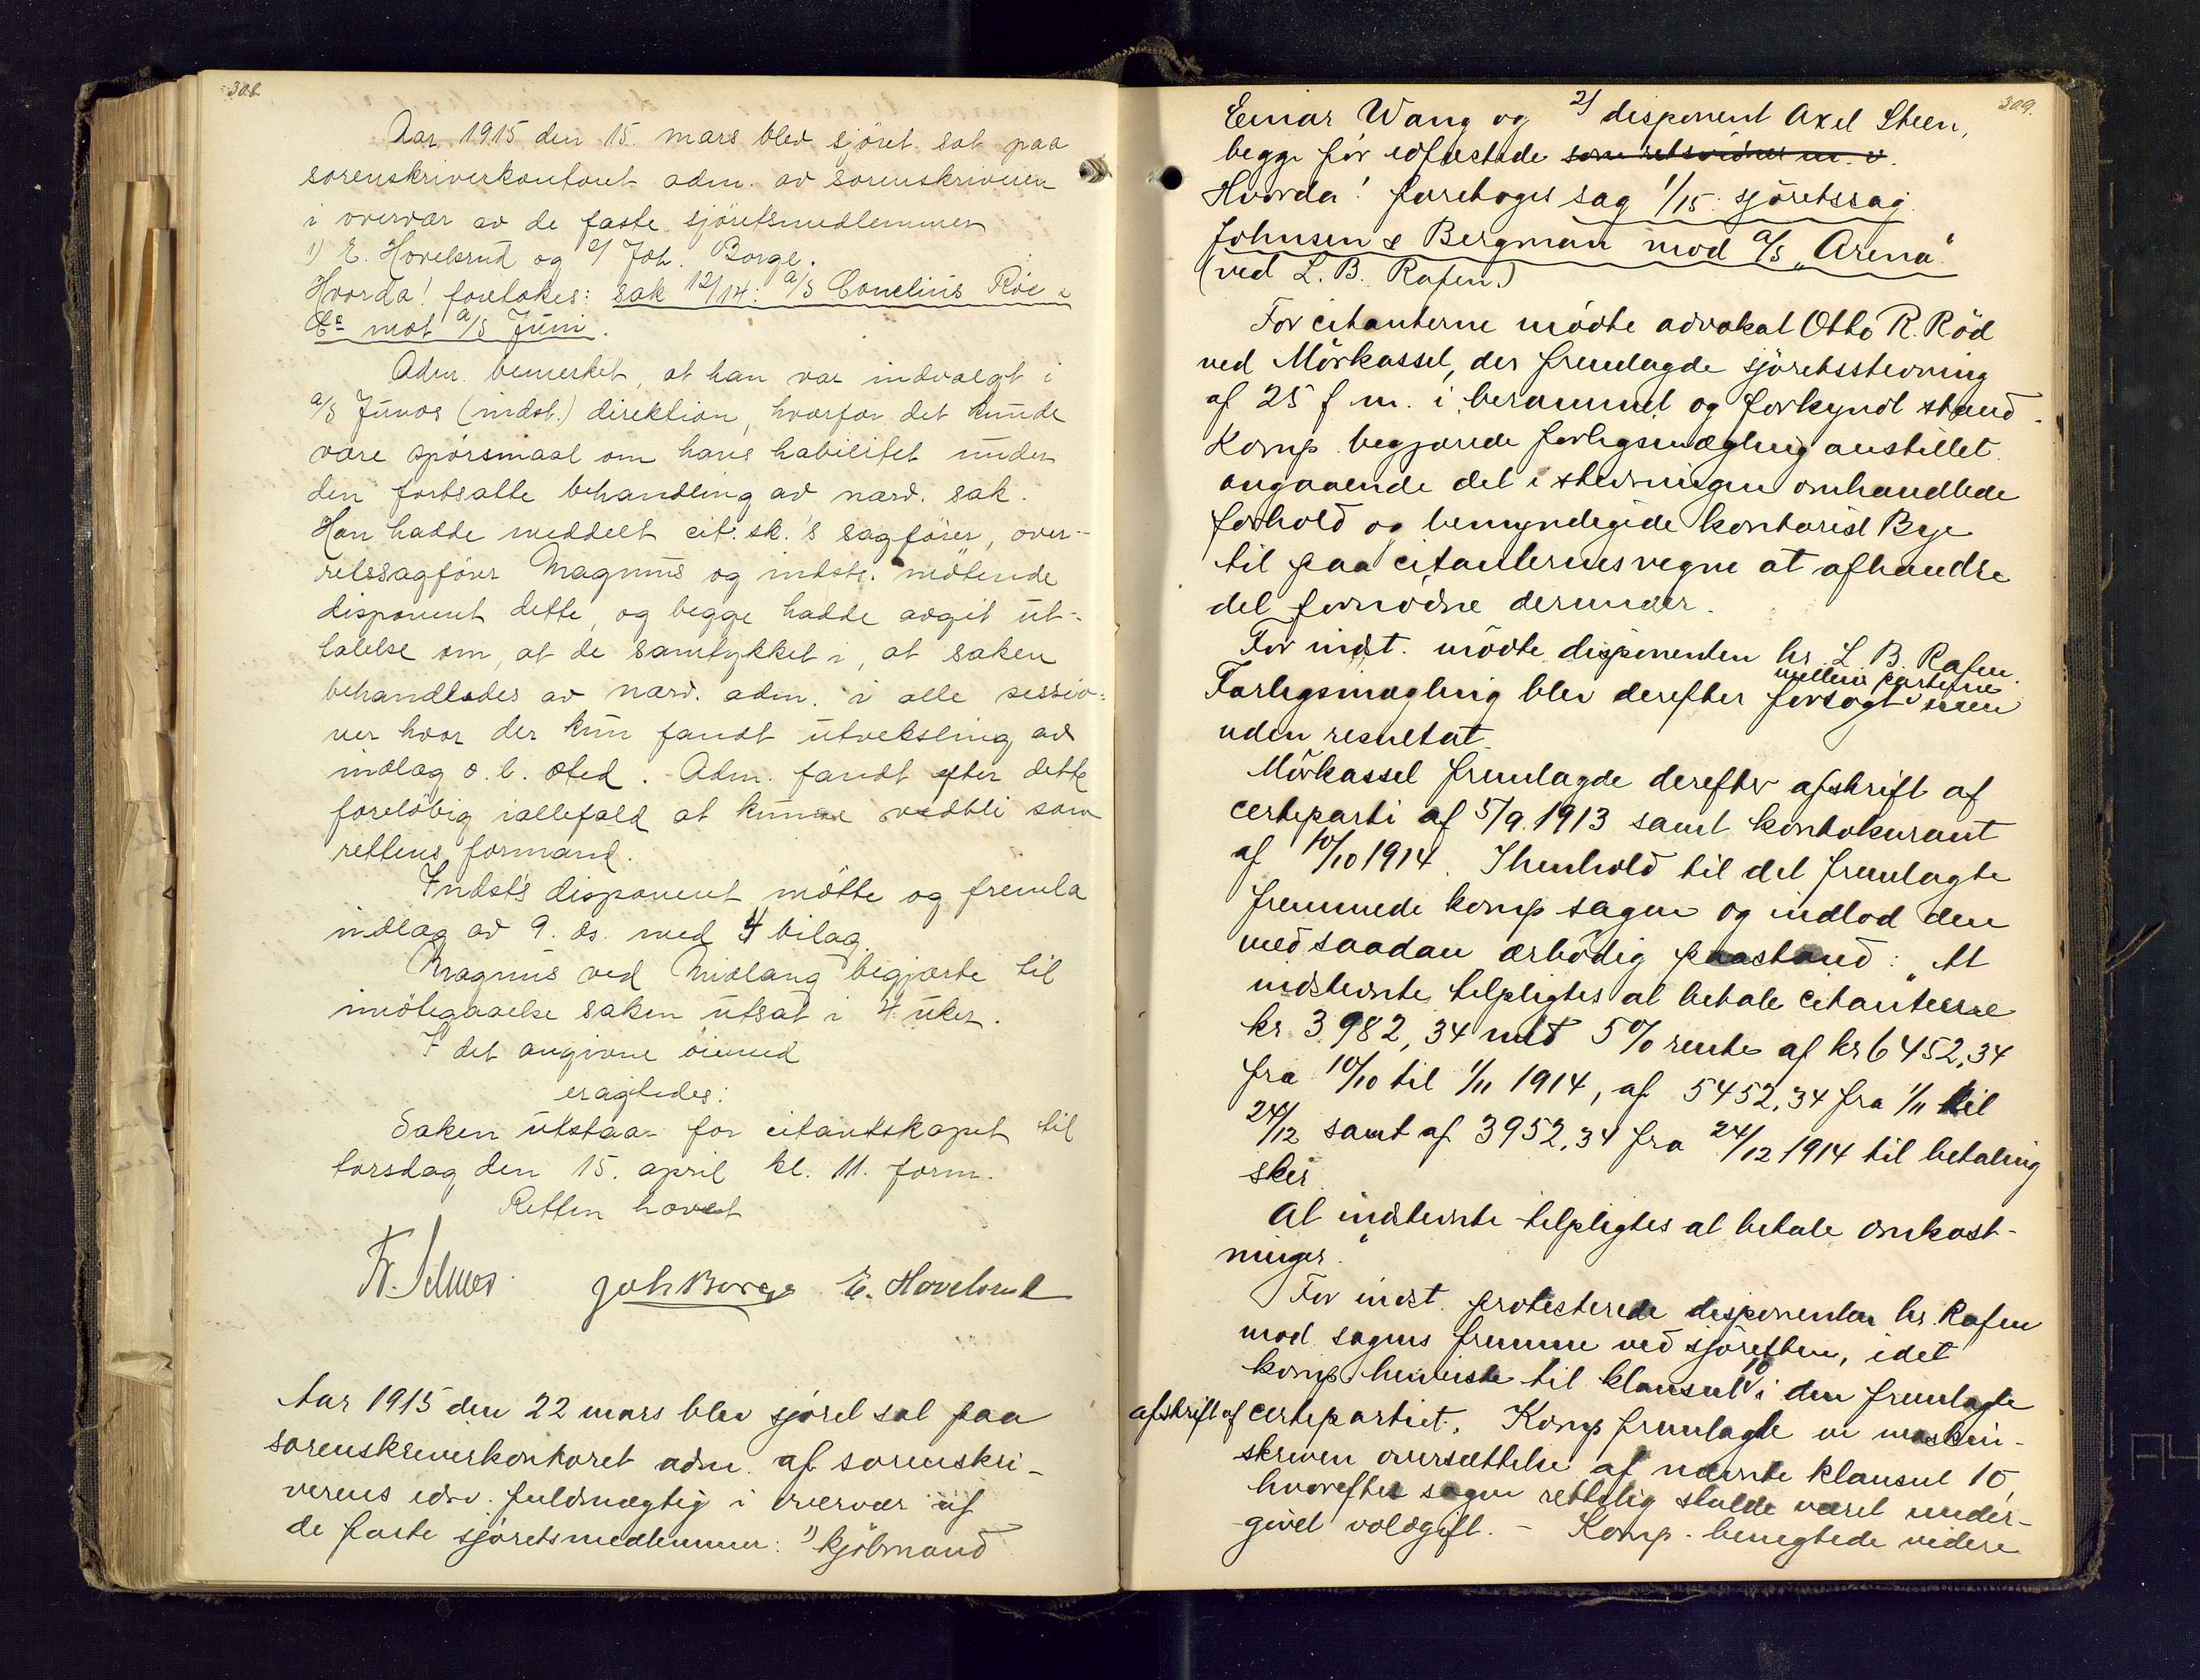 308.
Aar 1915 den 15. mars blev sjöret sat paa
sorenskriverkontoret adm. av sorenskriveren
i overvær av de faste sjöretsmedlemmer
1) E. Hovelsrud og 2) Joh. Borge.
Hvorda! foretokes: sak 12/14: a/s Cornelius Röe &
Co mot a/s Juno.
Adm. bemerket, at han var indvalgt i
a/s Junos (indst.) direktion, hvorfor det kunde
være spörsmaal om hans habilitet under
den fortsatte behandling av nærv. sak.
Han hadde meddelt cit.sk.'s sagförer, over-
retssagförer Magnus og indst. mötende
disponent dette, og begge hadde avgit ut-
talelse om, at de samtykket i, at saken
behandledes av nærv. adm. i alle sessio-
ner hvor der kun fandt utveksling av
indlæg o.l. sted. Adm. fandt efter dette
forelöbig iallefald at kunne vedbli som
rettens formand.
Indst's disponent mötte og fremla
indlæg av 9. ds. med 4 bilag.
Magnus ved Midlang begjærte til
imötegaaelse saken utsat i 4 uker.
I det angivne öiemed
eragtedes:
Saken utstaar for citantskapet til
torsdag den 15. april kl. 11. form.
Retten hævet
Joh Borge E. Hovelsrud
Aar 1915 den 22 mars blev sjöret sat paa
sorenskriverkontoret adm. af sorenskri-
verens edsv. fuldmægtig i overvær af
de faste sjöretsmedlemmer: 1) kjöbmand
309.
Einar Wang og 2) disponent Axel Steen,
begge för edfæstede som retsvidner m. v.
Hvorda! foretoges sag 1/15: sjöretssag
Johnsen & Bergman mod a/s "Arena"
(ved L. B. Rafen)
For citanterne mödte advokat Otto R. Röd
ved Mörkassel, der fremlagde sjöretsstevning
af 25 f m. i berammet og forkyndt stand.
Komp. begjærede forligsmægling anstillet
angaaende det i stevningen omhandlede
forhold og bemyndigede kontorist Bye
til paa citanternes vegne at afhandle
det fornödne derunder.
For indst. mödte disponenten hr. L. B. Rafen.
Forligsmægling blev derefter forsögt mellem parterne men
uden resultat.
Mörkassel fremlagde derefter afskrift af
certeparti af 5/9. 1913 samt kontokurant
af 10/10 1914. I henhold til det fremlagte
fremmede komp sagen og indlod den
med saadan ærbödig paastand: "At
indstevnte tilpligtes at betale citanterne
kr 3982,34 med 5% rente af kr 6452,34
fra 10/10 til 1/11 1914, af 5452,34 fra 1/11 til
24/12 samt af 3952,34 fra 24/12 1914 til betaling
sker
At indstevnte tilpligtes at betale omkost-
ninger."
For indst. protesterede disponenten hr. Rafen
mod sagens fremme ved sjöretten, idet
komp henviste til klausul 10 i den fremlagte
afskrift af certepartiet. Komp fremlagde en maskin-
skreven oversættelse af nævnte klausul 10,
hvorefter sagen rettelig skulde været under-
givet voldgift. – Komp. benegtede videre